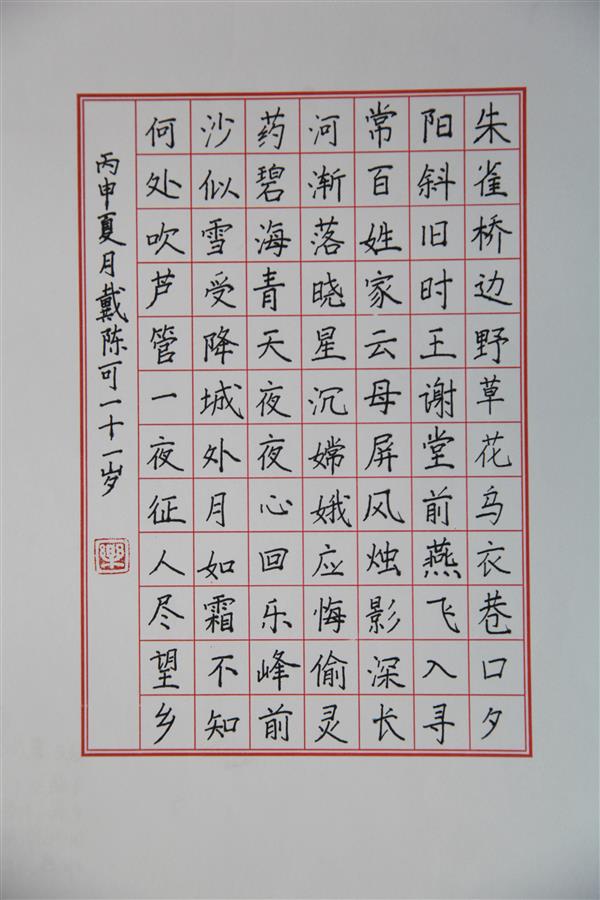 朱雀桥边野草花乌衣巷口夕
阳斜旧时王谢堂前燕飞入寻
常百姓家云母屏风烛影深长
河渐落晓星沉嫦娥应悔偷灵
药碧海青天夜夜心回乐峰前
沙似雪受降城外月如霜不知
何处吹芦管一夜征人尽望乡
丙申夏月戴陈可一十一岁